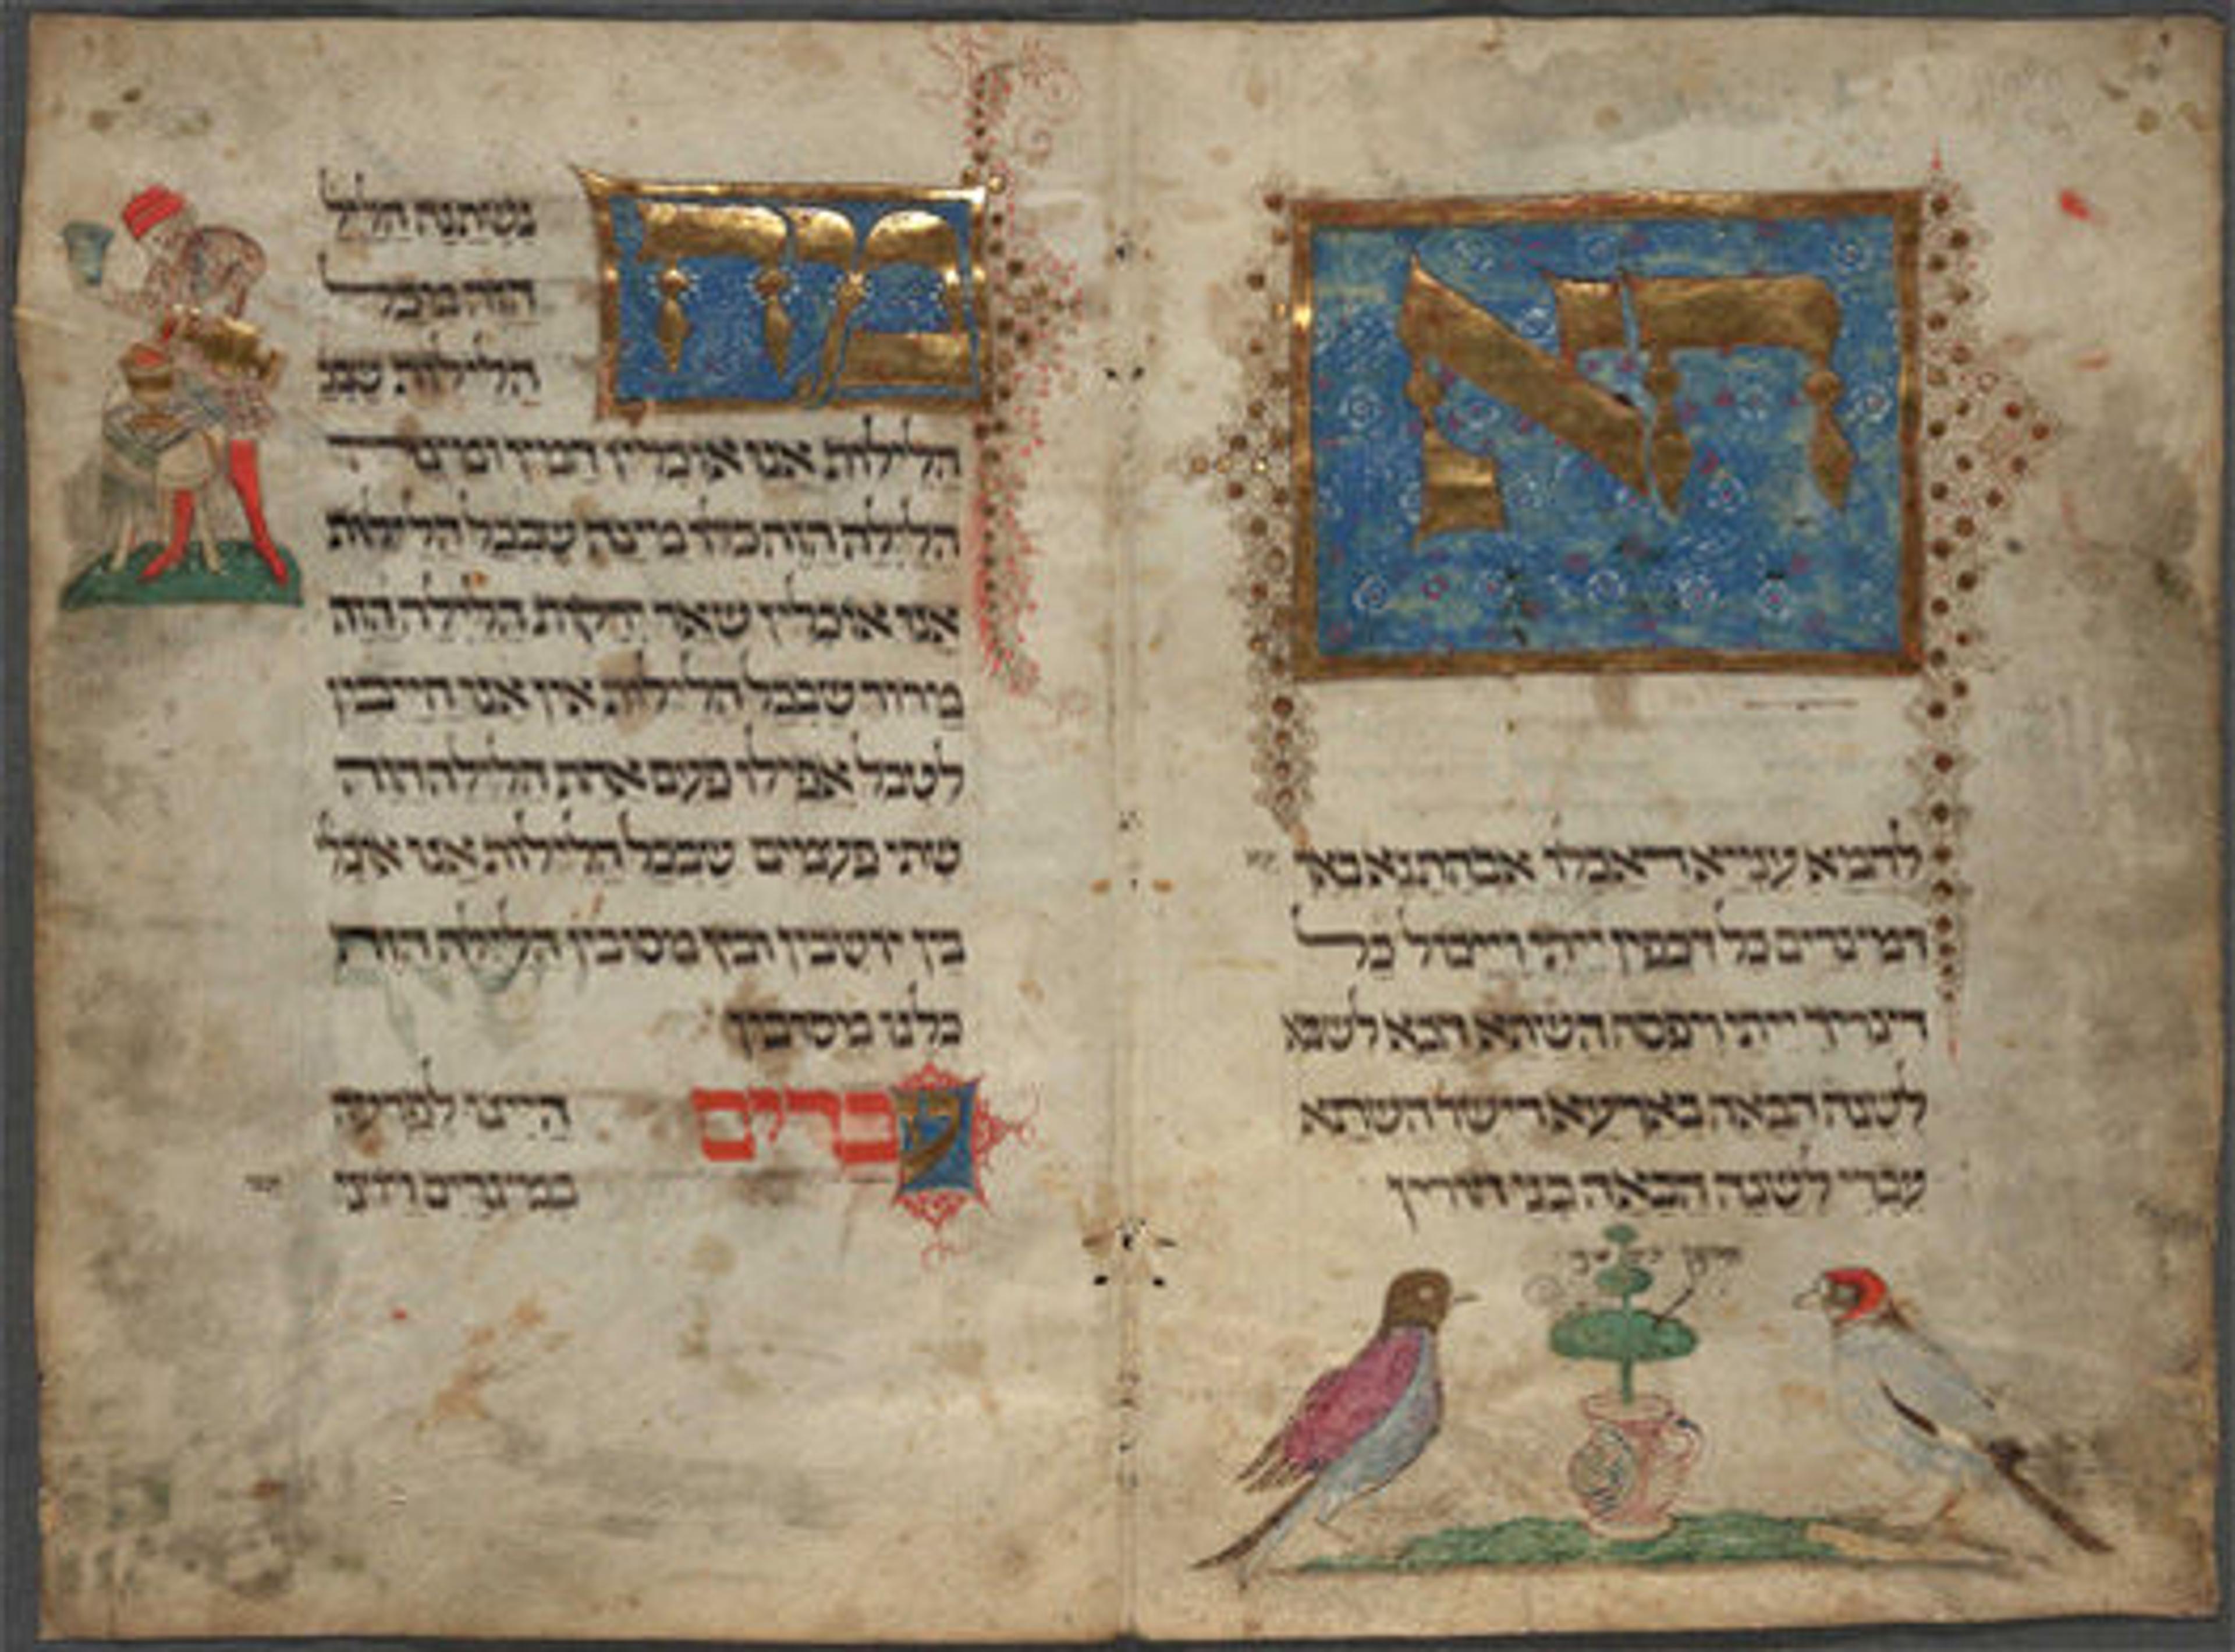 הא
לחמא ענייא די אכלו אבהתנא באר
דמצרים כל דכפין ייתי וייכול כל
דצריך ייתי ויפסח השתא הכא לשנא
לשנה הבאה בארעא דישר השתא
עבדי לשנה הבאה בני חורין
מה נשתנה הליל
הזה מכל
הלילות שבכ
הלילות אנו אוכלין חמץ ומצה
הלילה הזה כולו מצה שבכל הלילות
אנו אוכלין שאר ירקות הלילה הזה
מרור שבכל הלילות אין אנו חייבין
לטבל אפילו פעם אחת הלילה הזה
שתי פעמים שבכל הלילות אנו אוכל
בין יושבין ובין מסובין הלילה הזה
כלנו מסובין
עבדים היינו לפרעה
במצרים